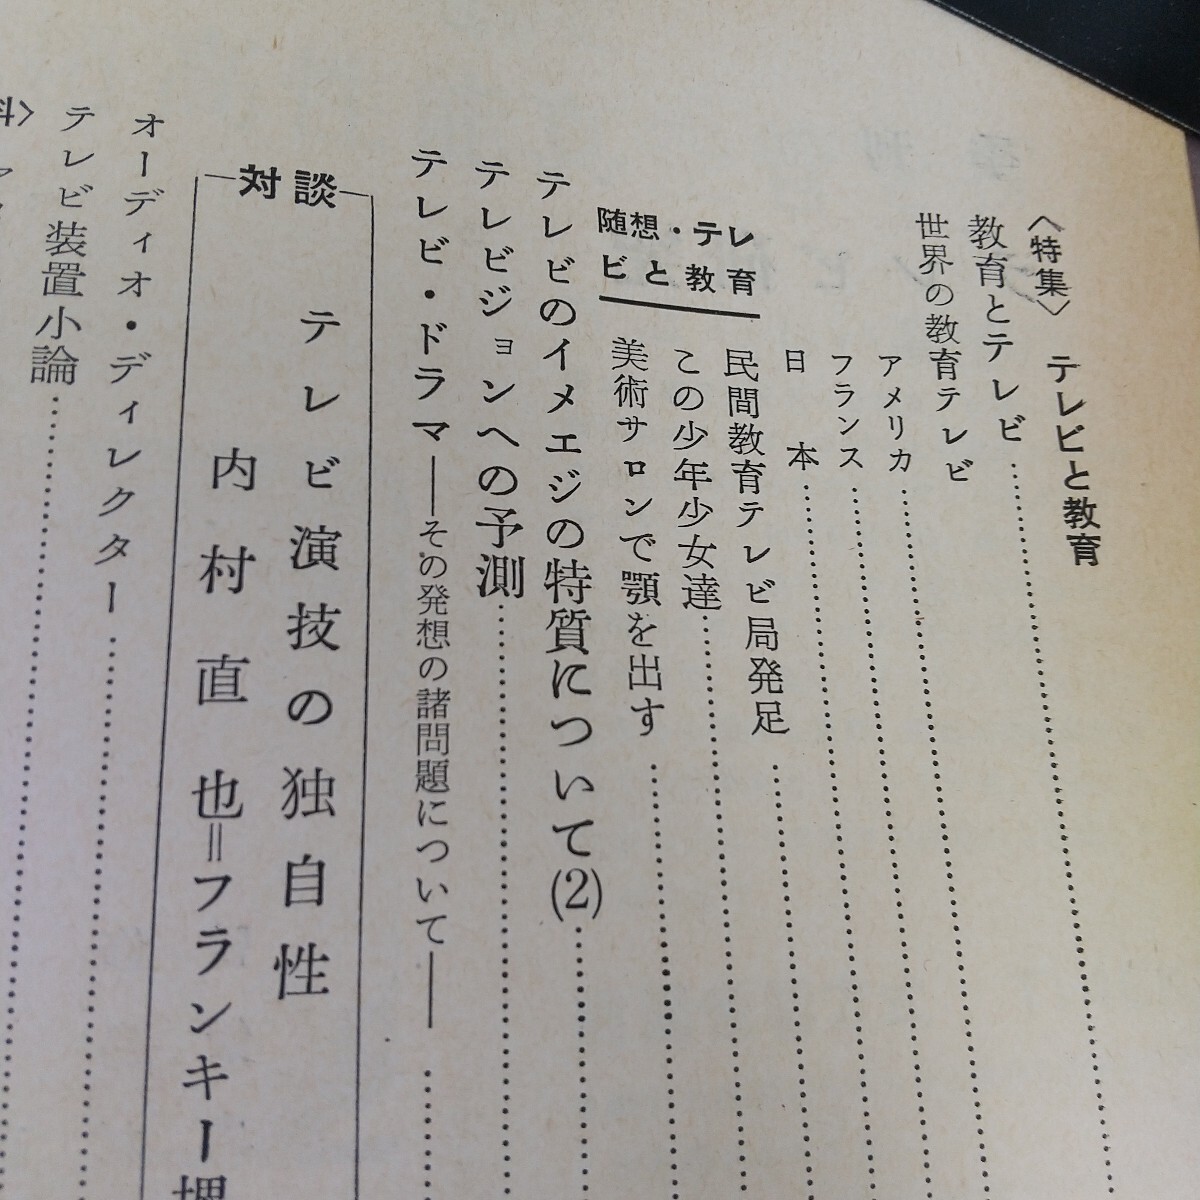 〈特集〉 テレビと教育
教育とテレビ
世界の教育テレビ
アメリカ
フランス
日本
随想・テレ
ビと教育
民間教育テレビ局発足
この少年少女達
美術サロンで顎を出す
テレビのイメエジの特質について(2)
テレビジョンへの予測
テレビ・ドラマ——その発想の諸問題について——
対談
テレビ演技の独自性
内村直也＝フランキー堺
オーディオ・ディレクター
テレビ装置小論